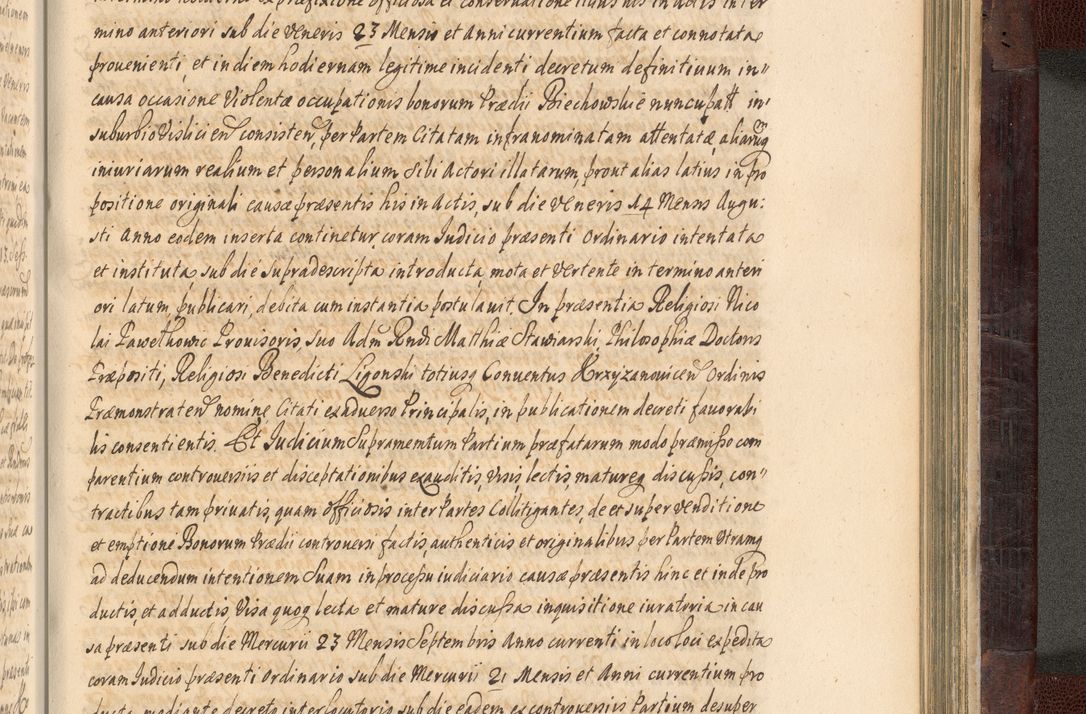 mino anteriori sub die Veneris 23 Mensis et Anni currentium facta et connotata
prouenienti, et in diem hodiernam legitime incidenti decretum definitiuum in
causa occasione Violentæ occupationis bonorum Prædii Biechowskie nuncupatt in
suburbio Vislicien consisten, per Partem Citatam infranominatam attentatæ, aliarumq
iniuriarum realium et personalium sibi Actori illatarum, prout alias latius in pro
positione originali causæ præsentis his in Actis, sub die Veneris 14 Mensis Augu:
sti Anno eodem inserta continetur, coram Iudicio præsenti Ordinario intentata
et instituta sub die supradescripta introducta mota et Vertente in termino anteri
ori latum, publicari, debita cum instantia postulauit. In præsentia Religiosi Nico
lai Pawełkowic Prouisoris, suo Adm Rndi Matthiæ Stawiarski, Philosophiæ Doctoris
Præpositi, Religiosi Benedicti Ligonski totiusq Conuentus Krzyzanouicen Ordinis
Præmonstraten nomine Citati ex aduerso Principalis, in publicationem decreti fauorabi
lis consentientis. Et Iudicium Supramemtum Partium præfatarum modo præmisso com
parentium controuersiis et disceptationibus exauditis, Visis, lectis, matureq discussis, con
tractibus tam priuatis, quam officiosis inter Partes Collitigantes, de et super Venditione
et emptione Bonorum Prædii controuersi factis, authenticis et originalibus per Partem Utramq
ad deducendum intentionem Suam in processu iudiciario causæ præsentis hinc et inde pro
ductis, et adductis, Visa quoq lecta et mature discussa inquisitione iuratoria in cau
sa præsenti sub die Mercurii 23 Mensis Septembris Anno currenti in loco loci expedita
coram Iudicio præsenti Ordinario sub die Mercurii 21 Mensis et Anni currentium pro
ducta, mediante decreto interlocutorio sub die eadem ex controuersiis Partium desuper